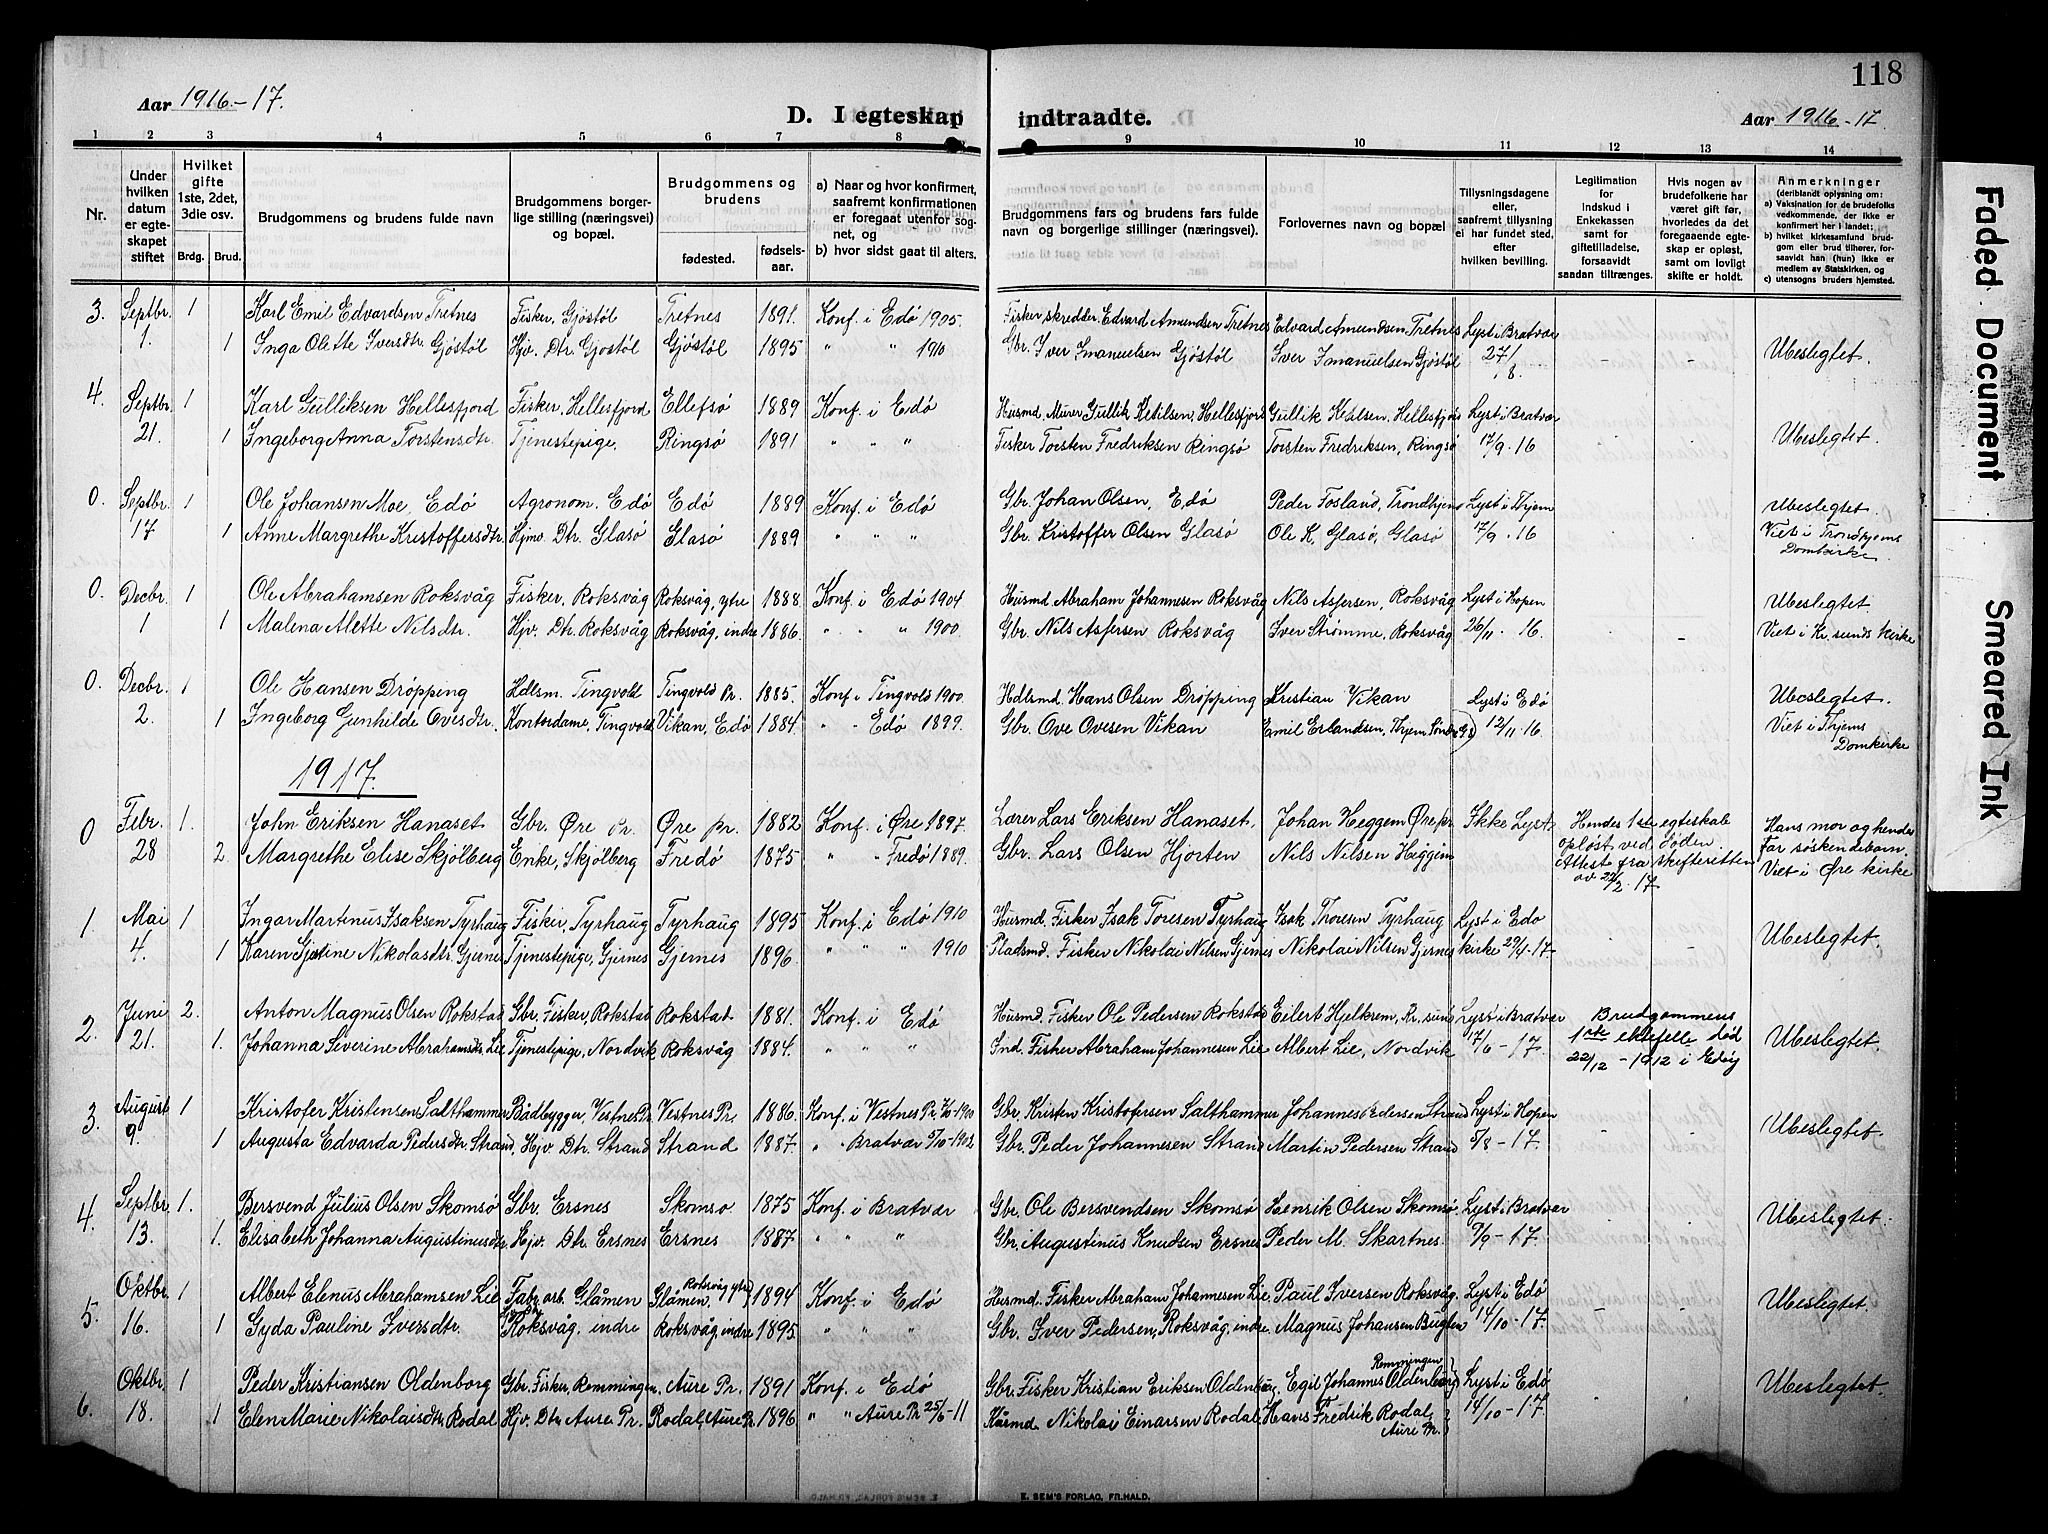 118
Aar 1916-17.
D. I egteskap indtraadte.
Aar 1916-17.
1 2 3 4 5 6 7 8 9 10 11 12 13 14
Nr.
Under hvilken datum er egteskapet stiftet
Hvilket gifte 1ste, 2det, 3die osv.
Brdg. Brud.
Brudgommens og brudens fulde navn
Brudgommens borgerlige stilling (næringsvei) og bopæl.
Brudgommens og brudens
fødested. fødselsaar.
a) Naar og hvor konfirmert, saafremt konfirmationen er foregaat utenfor sognet, og
b) hvor sidst gaat til alters.
Brudgommens fars og brudens fars fulde navn og borgerlige stillinger (næringsvei).
Forlovernes navn og bopæl
Tillysningsdagene eller, saafremt tillysning ei har fundet sted, efter hvilken bevilling.
Legitimation for indskud i Enkekassen samt for giftetilladelse, forsaavidt saadan tiltrænges.
Hvis nogen av brudefolkene har været gift før, hvorledes da det foregaaende egteskap er opløst, samt om lovligt skifte er holdt.
Anmerkninger
(deriblandt oplysning om:
a) Vaksination for de brudefolks vedkommende, der ikke er konfirmert her i landet;
b) hvilket kirkesamfund brudgom eller brud tilhører, forsaavidt han (hun) ikke er medlem av Statskirken, og
c) utensogns bruders hjemsted.
3. Septbr. 1 Karl Emil Edvardsen Tretnes Fisker, Gjøstøl Tretnes 1891. Konf. i Edø 1905. Fisker, skredder, Edvard Amundsen Tretnes Edvard Amundsen Tretnes Lyst i Bratvær
1. 1 Inga Olette Iversdtr. Gjøstøl Hjv. Dtr. Gjøstøl Gjøstøl 1895 " " 1910 Gbr. Iver Imanuelsen Gjøstøl Iver Imanuelsen Gjøstøl 27/8. - - Ubeslegtet.
4. Septbr. 1 Karl Gulliksen Hellesfjord Fisker, Hellesfjord Ellefsø 1889 Konf. i Edø Husmd. Murer Gullik Ketilsen, Hellesfjord Gullik Ketilsen, Hellesfjord Lyst i Bratvær
21. 1 Ingeborg Anna Torstensdtr. Tjenestepige, Ringsø 1891 " " " Fisker Torsten Fredriksen Ringsø Torsten Fredriksen, Ringsø 17/9. 16 Ubeslegtet.
0. Septbr. 1 Ole Johansen Moe, Edø Agronom, Edø Edø 1889 Konf. i Edø Gbr. Johan Olsen, Edø Peder Fosland, Trondhjem Lyst i Thjem Ubeslegtet.
17 1 Anne Margrethe Kristoffersdtr. Hjmv. Dtr. Glasø Glasø 1889 " " " Gbr. Kristoffer Olsen Glasø Ole K. Glasø, Glasø 17/9. 16 Viet i Trondhjems
Domkirke
0. Decbr. 1 Ole Abrahamsen Roksvåg Fisker, Roksvåg Roksvåg, ytre 1888. Konf. i Edø 1904 Husmd. Abraham Johannesen Roksvåg Nils Asfersen, Roksvåg Lyst i Hopen Ubeslegtet
1 1 Malena Alette Nilsdtr. Hjv. Dtr. Roksvåg Roksvåg, indre 1886. " " " 1900 Gbr. Nils Asfersen Roksvåg Iver Strømme, Roksvåg 26/11. 16. Viet i Kr.sunds kirke
0. Decbr. 1 Ole Hansen Drøpping Hdlsm. Tingvold Tingvold Pr. 1885. Konf. i Tingvold 1900 Hdlsmd. Hans Olsen Drøpping Kristian Vikan Lyst i Edø Ubeslegtet.
2. 1 Ingeborg Gunhilde Ovesdtr. Kontordame, Tingvold Vikan, Edø 1884 " " Edø 1899. Gbr. Ove Ovesen Vikan Emil Erlandsen, Thjem 12/11. 16. Viet i Thjems
Domkirke
1917.
0 Febr. 1. John Eriksen Hanaset Gbr. Øre Pr. Øre pr. 1882 Konf. i Øre 1897. Lærer Lars Eriksen Hanaset, Johan Heggem Øre pr Ikke Lyst Hendes 1ste egteskab Hans mor og hendes
28 2. Margrethe Elise Skjølberg Enke, Skjølberg Fredø 1875 " " Fredø 1889. Gbr. Lars Olsen Hjorten Nils Nilsen Heggem opløst ved døden. Far søskendebarn.
Attest fra skifteretten av 22/2. 17 Viet i Øre kirke
1 Mai 1 Ingar Martinus Isaksen Tyrhaug Fisker, Tyrhaug Tyrhaug 1895 Konf. i Edø 1910 Husmd. Fisker Isak Toresen Tyrhaug Isak Thoresen Tyrhaug Lyst i Edø
4. 1 Karen Gjertine Nikolasdtr. Gjernes Tjenestepige, Gjernes Gjernes 1896. " " " 1910 Pladsmd. Fisker Nikolai Nilsen Gjernes Nikolai Nilsen Gjernes kirke 29/4-17. Ubeslegtet.
2. Juni 2. Anton Magnus Olsen Rokstad Gbr. Fisker, Rokstad Rokstad 1881. Konf. i Edø Husmd. Fisker Ole Pedersen Rokstad Eilert Hjelkrem, Kr.sund Lyst i Bratvær Brudgommens
21. 1. Johanna Severine Abrahamsdtr. Lie Tjenestepige, Nordvik Roksvåg 1884. " " " Ind. Fisker Abraham Johannesen Lie Albert Lie, Nordvik 17/6-17. 1ste ektefelle død Ubeslegtet.
22/12-1912 i Edøy
3. August 1 Kristofer Kristensen Salthammer Bådbygger, Vestnes Pr. Vestnes Pr. 1886. Konf. i Vestnes Pr. 1900 Gbr. Kristen Kristofersen Salthammer Johannes Pedersen Strand Lyst i Hopen
9. 1 Augusta Edvarda Pedersdtr. Strand, Hjv. Dtr. Strand Strand 1887. " " Bratvær 5/10-1902 Gbr. Peder Johannesen Strand Martin Pedersen Strand 5/8-17. Ubeslegtet.
4. Septbr. 1. Bersvend Julius Olsen Skomsø Gbr. Ersnes Skomsø 1875 Konf. i Bratvær Gbr. Ole Bersvendsen Skomsø Henrik Olsen Skomsø. Lyst i Bratvær
13. 1. Elisabeth Johanna Augustinusdtr. Hjv. Dtr. Ersnes Ersnes 1887. " " " Gbr. Augustinus Knudsen Ersnes Peder M. Skartnes. 9/9-17. Ubeslegtet.
5. Oktbr. 1 Albert Elenus Abrahamsen Lie Fabr. arb. Glåmen Glåmen. Roksvåg ytre 1894 Konf. i Edø Husmd. Fisker Abraham Johannesen Lie Paul Iversen Roksvåg. Lyst i Edø
16. 1 Gyda Pauline Iversdtr. Roksvåg, indre Roksvåg, indre 1895 " " " Gbr. Iver Pedersen, Roksvåg, indre Magnus Johansen Bugten 14/10-17. Ubeslegtet.
6. Oktbr. 1 Peder Kristiansen Oldenborg Gbr. Fisker, Remmingen, Aure Pr. 1891 Konf. i Edø Gbr. Fisker Kristian Eriksen Oldenborg, Egil Johannes Oldenborg Remmingen Lyst i Edø
18. 1 Elen Marie Nikolaisdtr. Rodal Hjv. Dtr. Aure Pr. Rodal, Aure Pr. 1896 " " Aure Pr. 25/6-11 Kårmd. Nikolai Einarsen Rodal, Hans Fredrik Rodal, Aure Pr. 14/10-17. Ubeslegtet.
E. SEM'S FORLAG, FR.HALD.
Faded Document
Smeared Ink